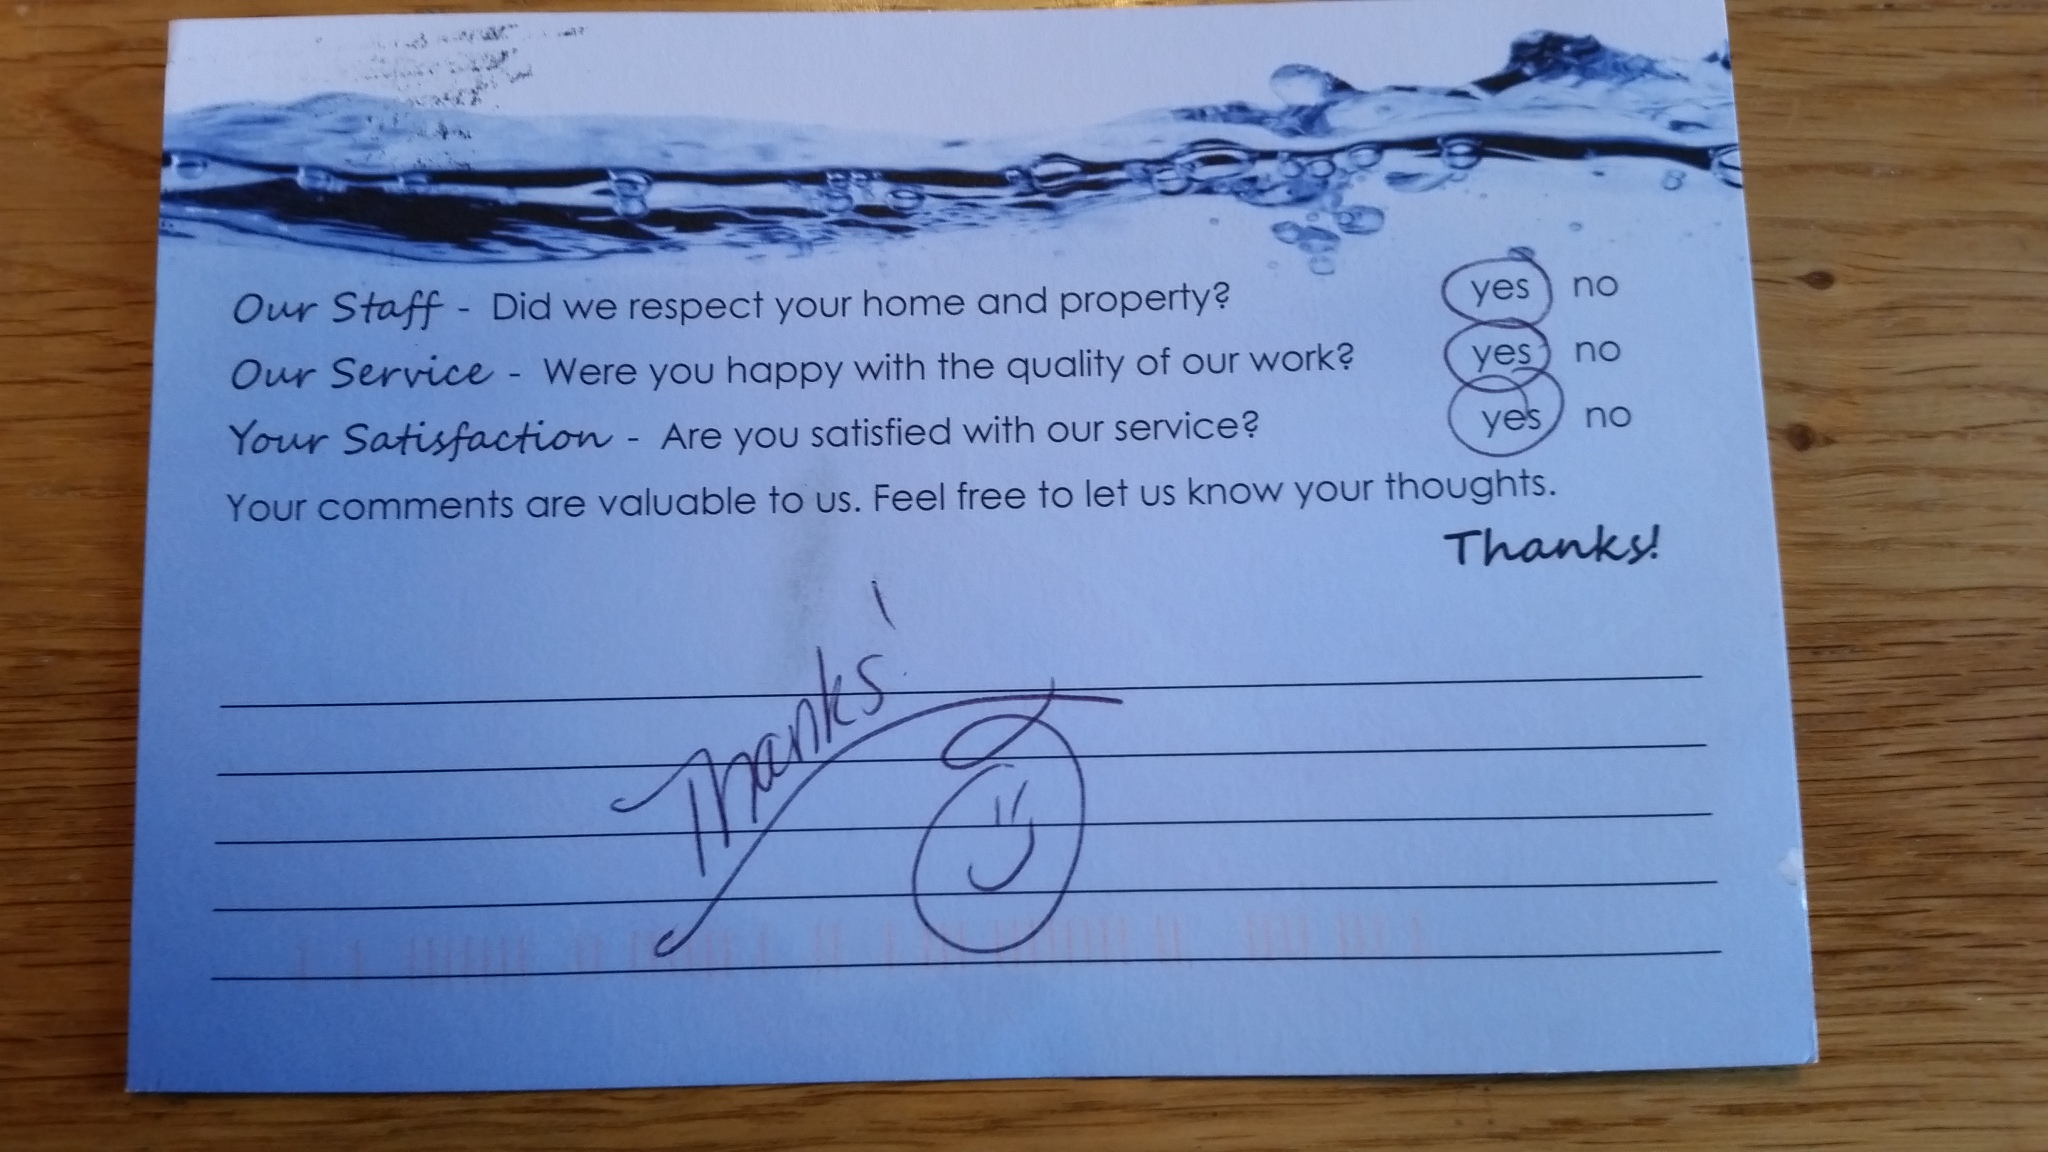 Our Staff - Did we respect your home and property? yes no
Our Service - Were you happy with the quality of our work? yes no
Your Satisfaction - Are you satisfied with our service? yes no
Your comments are valuable to us. Feel free to let us know your thoughts.
Thanks!
Thanks!